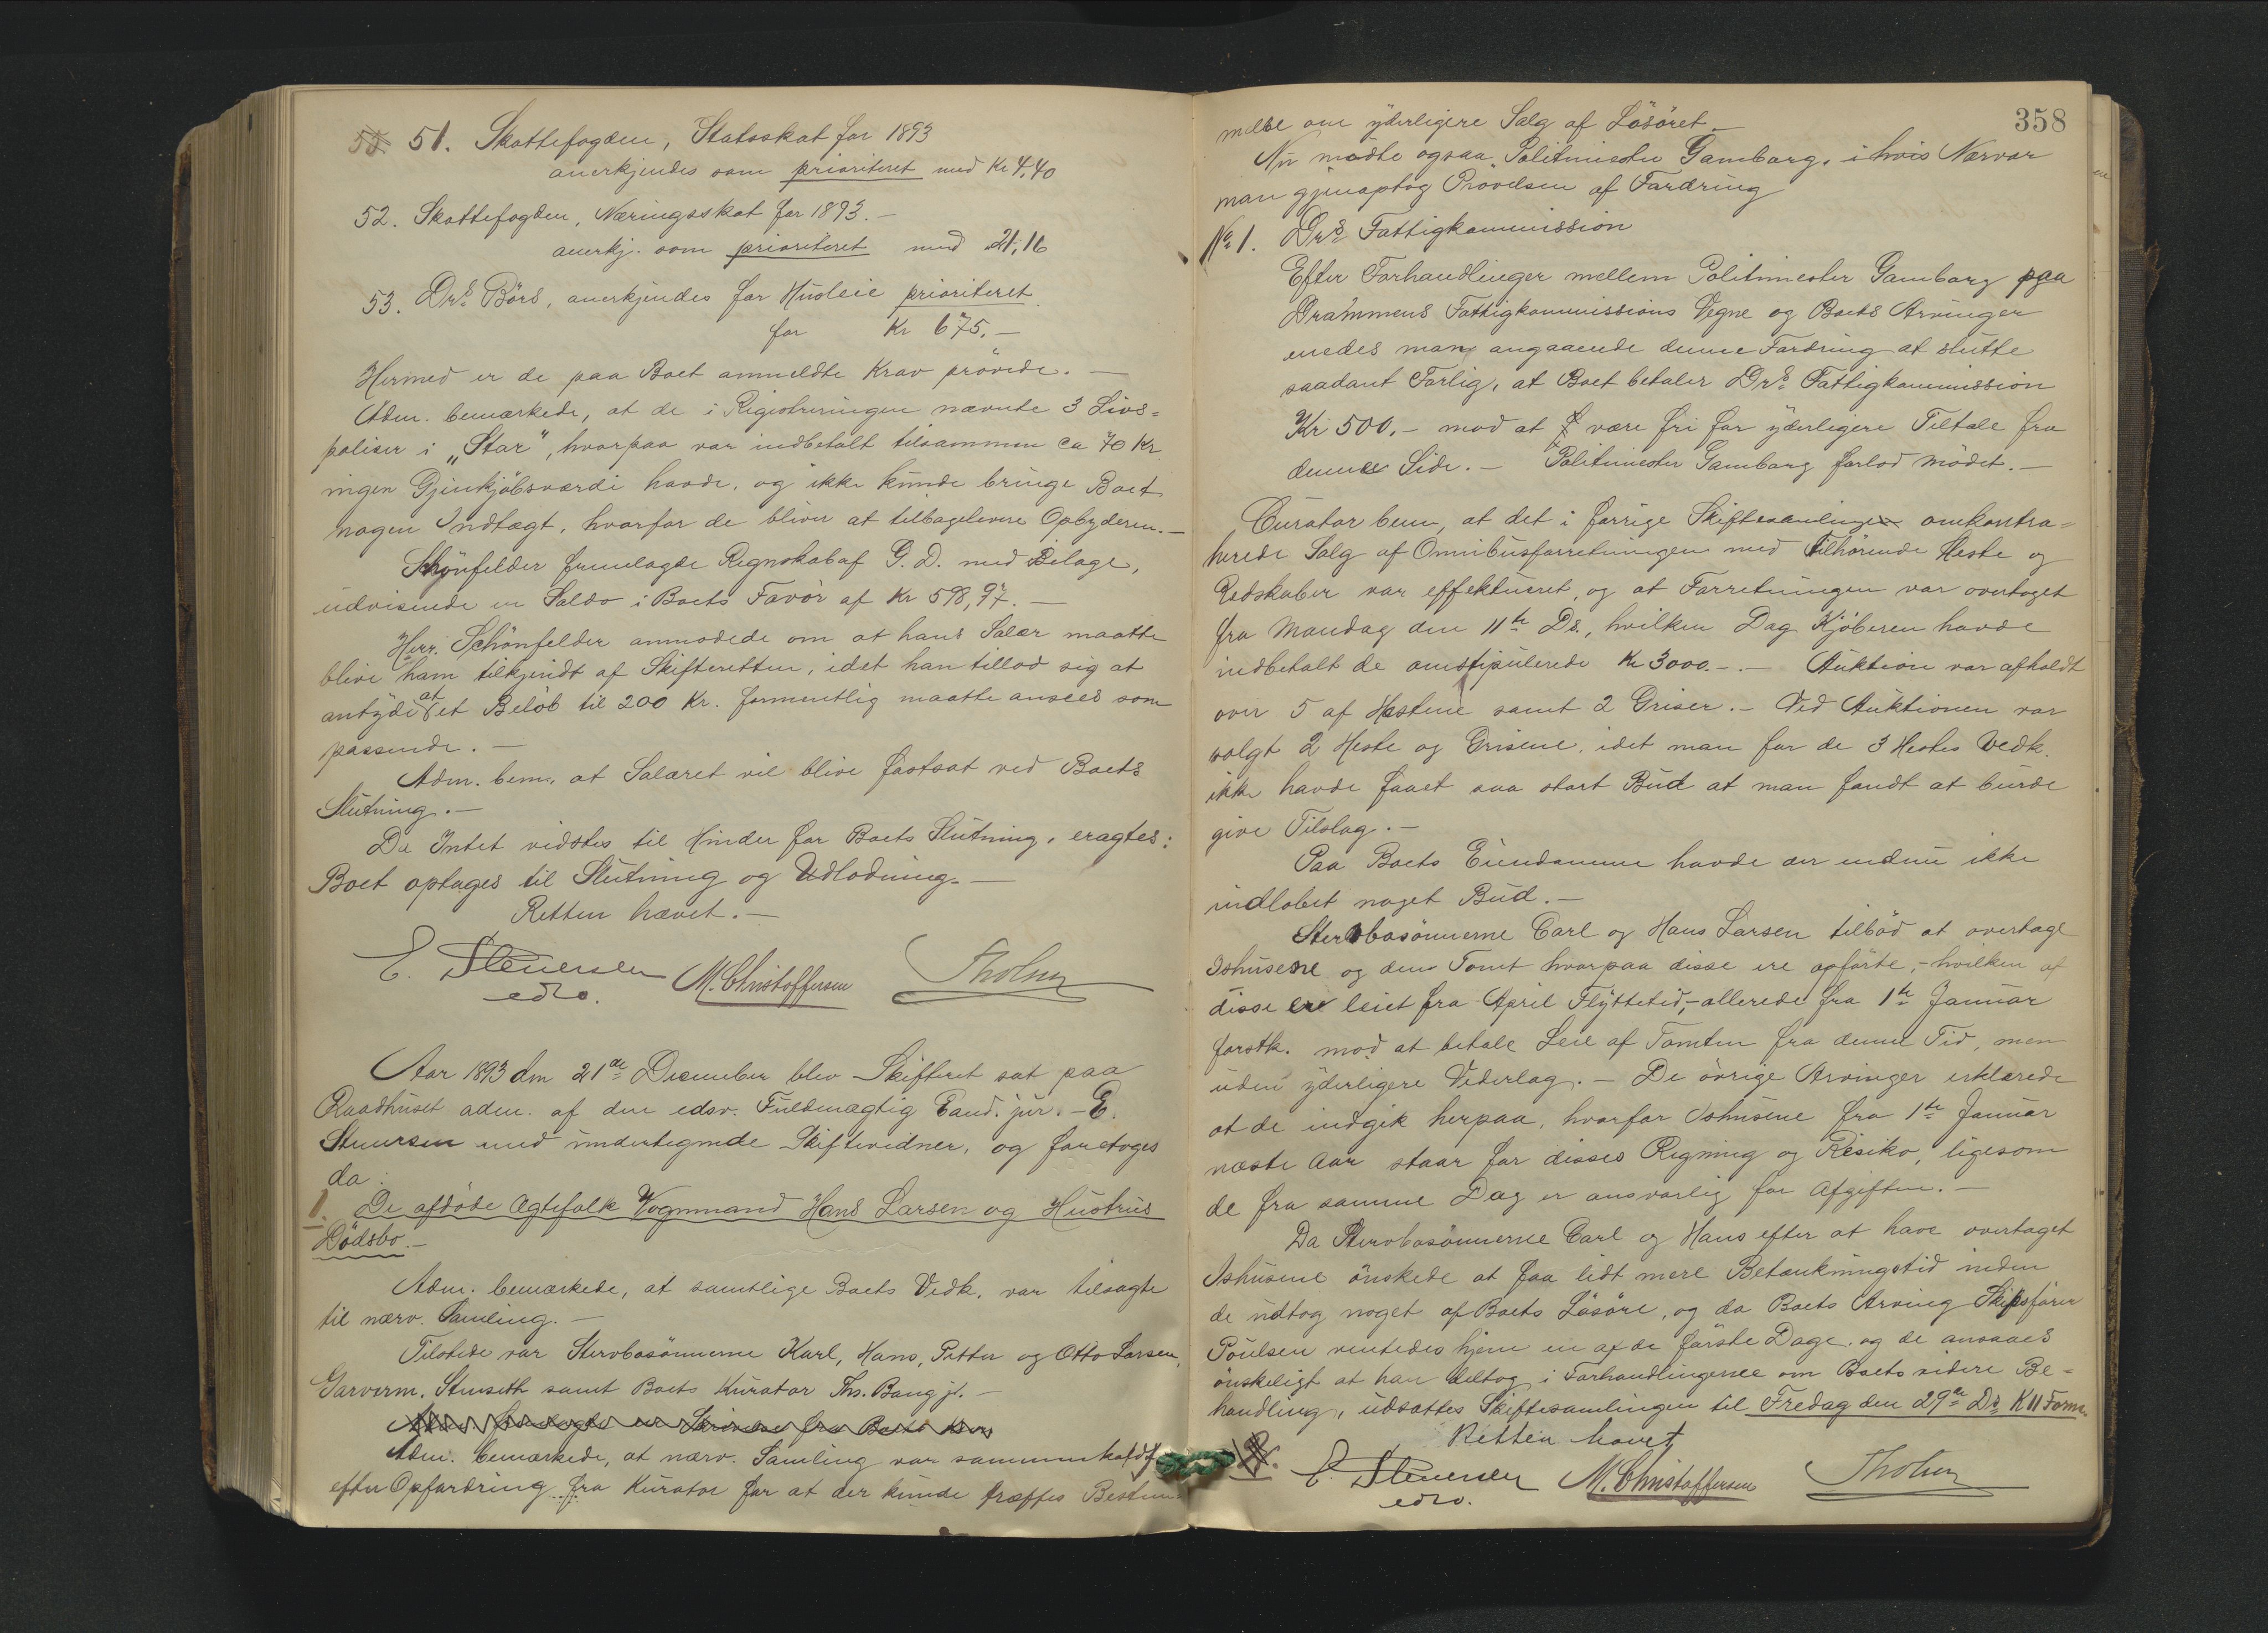 51. Skattefogden, Statsskat for 1893
anerkjendes som prioriteret med Kr 4,40
52. Skattefogden, Næringsskat for 1893.-
anerkj. som prioriteret med 21,16
53. Drs Börs, anerkjendes for Husleie prioriteret
for Kr 675.-
Hermed er de paa Boet anmeldte Krav prövede.-
Adm. bemærkede, at de i Registreringen nævnte 3 Livs=
poliser i „Star", hvorpaa var indbetalt tilsammen ca 70 Kr.
ingen Gjenkjöbsværdi havde, og ikke kunde bringe Boet
nogen Indtægt, hvorfor de bliver at tilbagelevere Opbyderen.-
Schönfelder fremlagde Regnskab af G. D. med Bilage,
udvisende en Saldo i Boets Favör af Kr 598,97.-
Herr. Schönfelder anmodede om at hans Salær maatte
blive ham tilkjendt af Skifteretten, idet han tillod sig at
antyde at et Belöb til 200 Kr. formentlig maatte ansees som
passende.-
Adm. bem. at Salæret vil blive fastsat ved Boets
Slutning.-
Da Intet vidstes til Hinder for Boets Slutning, eragtes:
Boet optages til Slutning og Udlodning.-
Retten hævet.-
E. Stenersen M. Christoffersen Tholm
edsv.
Aar 1893 den 21de December blev Skifteret sat paa
Raadhuset adm. af den edsv. Fuldmægtig Cand. jur. E.
Stenersen med undertegnede Skiftevidner, og foretoges
da:
1. De afdöde Ægtefolk Vognmand Hans Larsen og Hustrus
Dödsbo.-
Adm. bemærkede, at samtlige Boets Vedk. var tilsagte
til nærv. Samling.-
Tilstede var Stervbosönnerne Karl, Hans, Petter og Otto Larsen,
Garverm. Stenseth samt Boets Kurator Ths. Bang jr.-
Adm. fremlagde en Skrivelse fra Boets Kur
Adm. bemærkede, at nærv. Samling var sammenkaldt
efter Opfordring fra Kurator for at der kunde træffes Bestem
358
melse om yderligere Salg af Lösöret.-
Nu mödte ogsaa Politimester Gamborg, i hvis Nærvær
man gjenoptog Prövelsen af Fordring
No 1. Drs Fattigkommission
Efter Forhandlinger mellem Politimester Gamborg paa
Drammens Fattigkommissions Vegne og Boets Arvinger
enedes man angaaende denne Fordring at slutte
saadant Forlig, at Boet betaler Drs Fattigkommission
Kr 500.- mod at være fri for yderligere Tiltale fra
dennes Side.- Politimester Gamborg forlod Mödet.-
Curator bem, at det i forrige Skiftesamling omkontra=
herede Salg af Omnibusforretningen med tilhörende Heste og
Redskaber var effektueret, og at Forretningen var overtaget
fra Mandag den 11te Ds., hvilken Dag Kjöberen havde
indbetalt de omstipulerede Kr 3000.-.- Auktion var afholdt
over 5 af Hestene samt 2 Griser.- Ved Auktionen var
solgt 2 Heste og Grisene, idet man for de 3 Hestes Vedk.
ikke havde faaet saa stort Bud at man fandt at burde
give Tilslag.-
Paa Boets Eiendomme havde der endnu ikke
indlöbet noget Bud.-
Stervbosönnerne Carl og Hans Larsen tilböd at overtage
Ishusene og den Tomt hvorpaa disse ere opförte,- hvilken af
disse er leiet fra April Flyttetid,- allerede fra 1te Januar
förstk. mod at betale Leie af Tomten fra denne Tid, men
uden yderligere Vederlag.- De övrige Arvinger erklærede
at de indgik herpaa, hvorfor Ishusene fra 1te Januar
næste Aar staar for disses Regning og Risiko, ligesom
de fra samme Dag er ansvarlig for Afgiften.-
Da Stervbosönnerne Carl og Hans efter at have overtaget
Ishusene önskede at faa lidt mere Betænkningstid inden
de udtog noget af Boets Lösöre, og da Boets Arving Skipsförer
Poulsen ventedes hjem en af de förste Dage, og de ansaaes
önskeligt at han deltog i Forhandlingerne om Boets videre Be=
handling, udsattes Skiftesamlingen til Fredag den 29de Ds. K 11 Form.
Retten hævet
E. Stenersen M. Christoffersen Tholm
edsv.